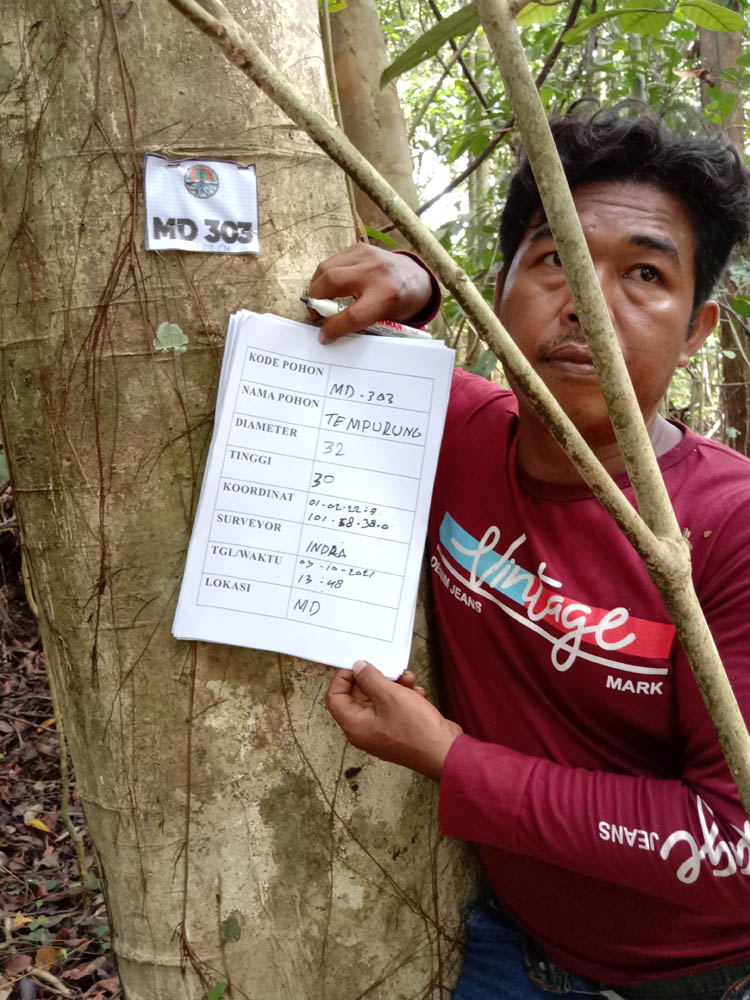 MD 303
110 CM
KODE POHON MD-303
NAMA POHON TEMPURUNG
DIAMETER 32
TINGGI 30
KOORDINAT 01-02-22.8
101-58-38.0
SURVEYOR INDRA
TGL/WAKTU 07-10-2021
13:48
LOKASI MD
Vintage
DENIM JEANS
MARK
JEANS